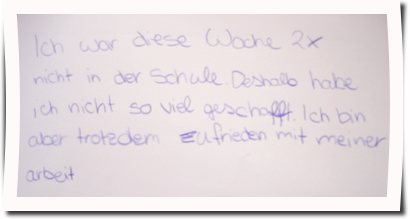 Ich war diese Woche 2x
nicht in der Schule. Deshalb habe
ich nicht so viel geschafft. Ich bin
aber trotzdem Zufrieden mit meiner
arbeit